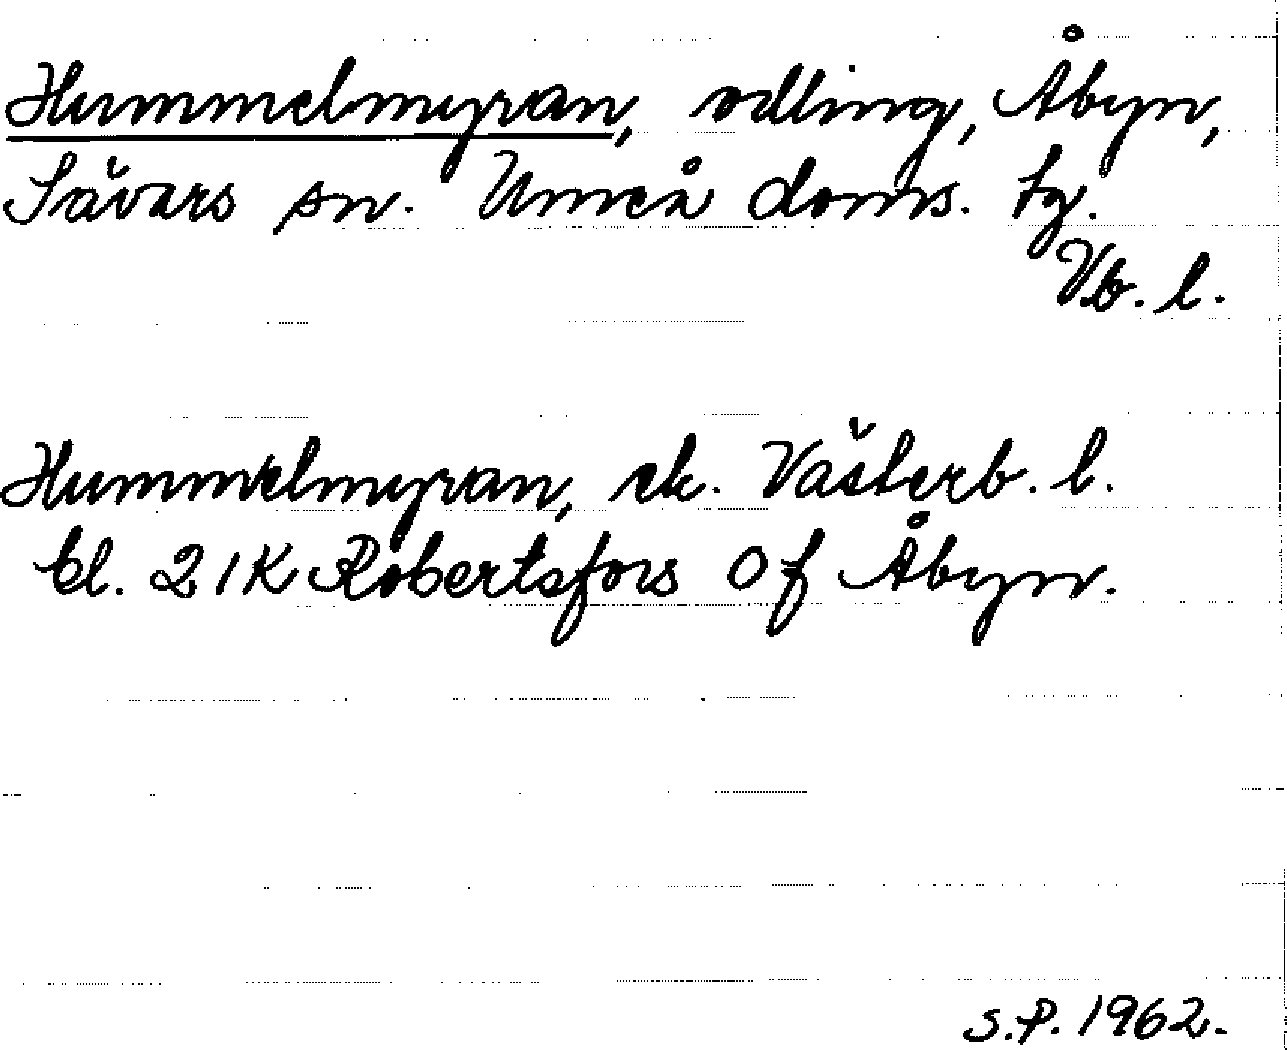 Hummelmyran, odling, Åbyn,
Sävars sn. Umeå doms. tg.
Vb. l.
Hummelmyran, ek. Västerb. l.
bl. 21K Robertsfors Of Åbyn.
S.P. 1962.